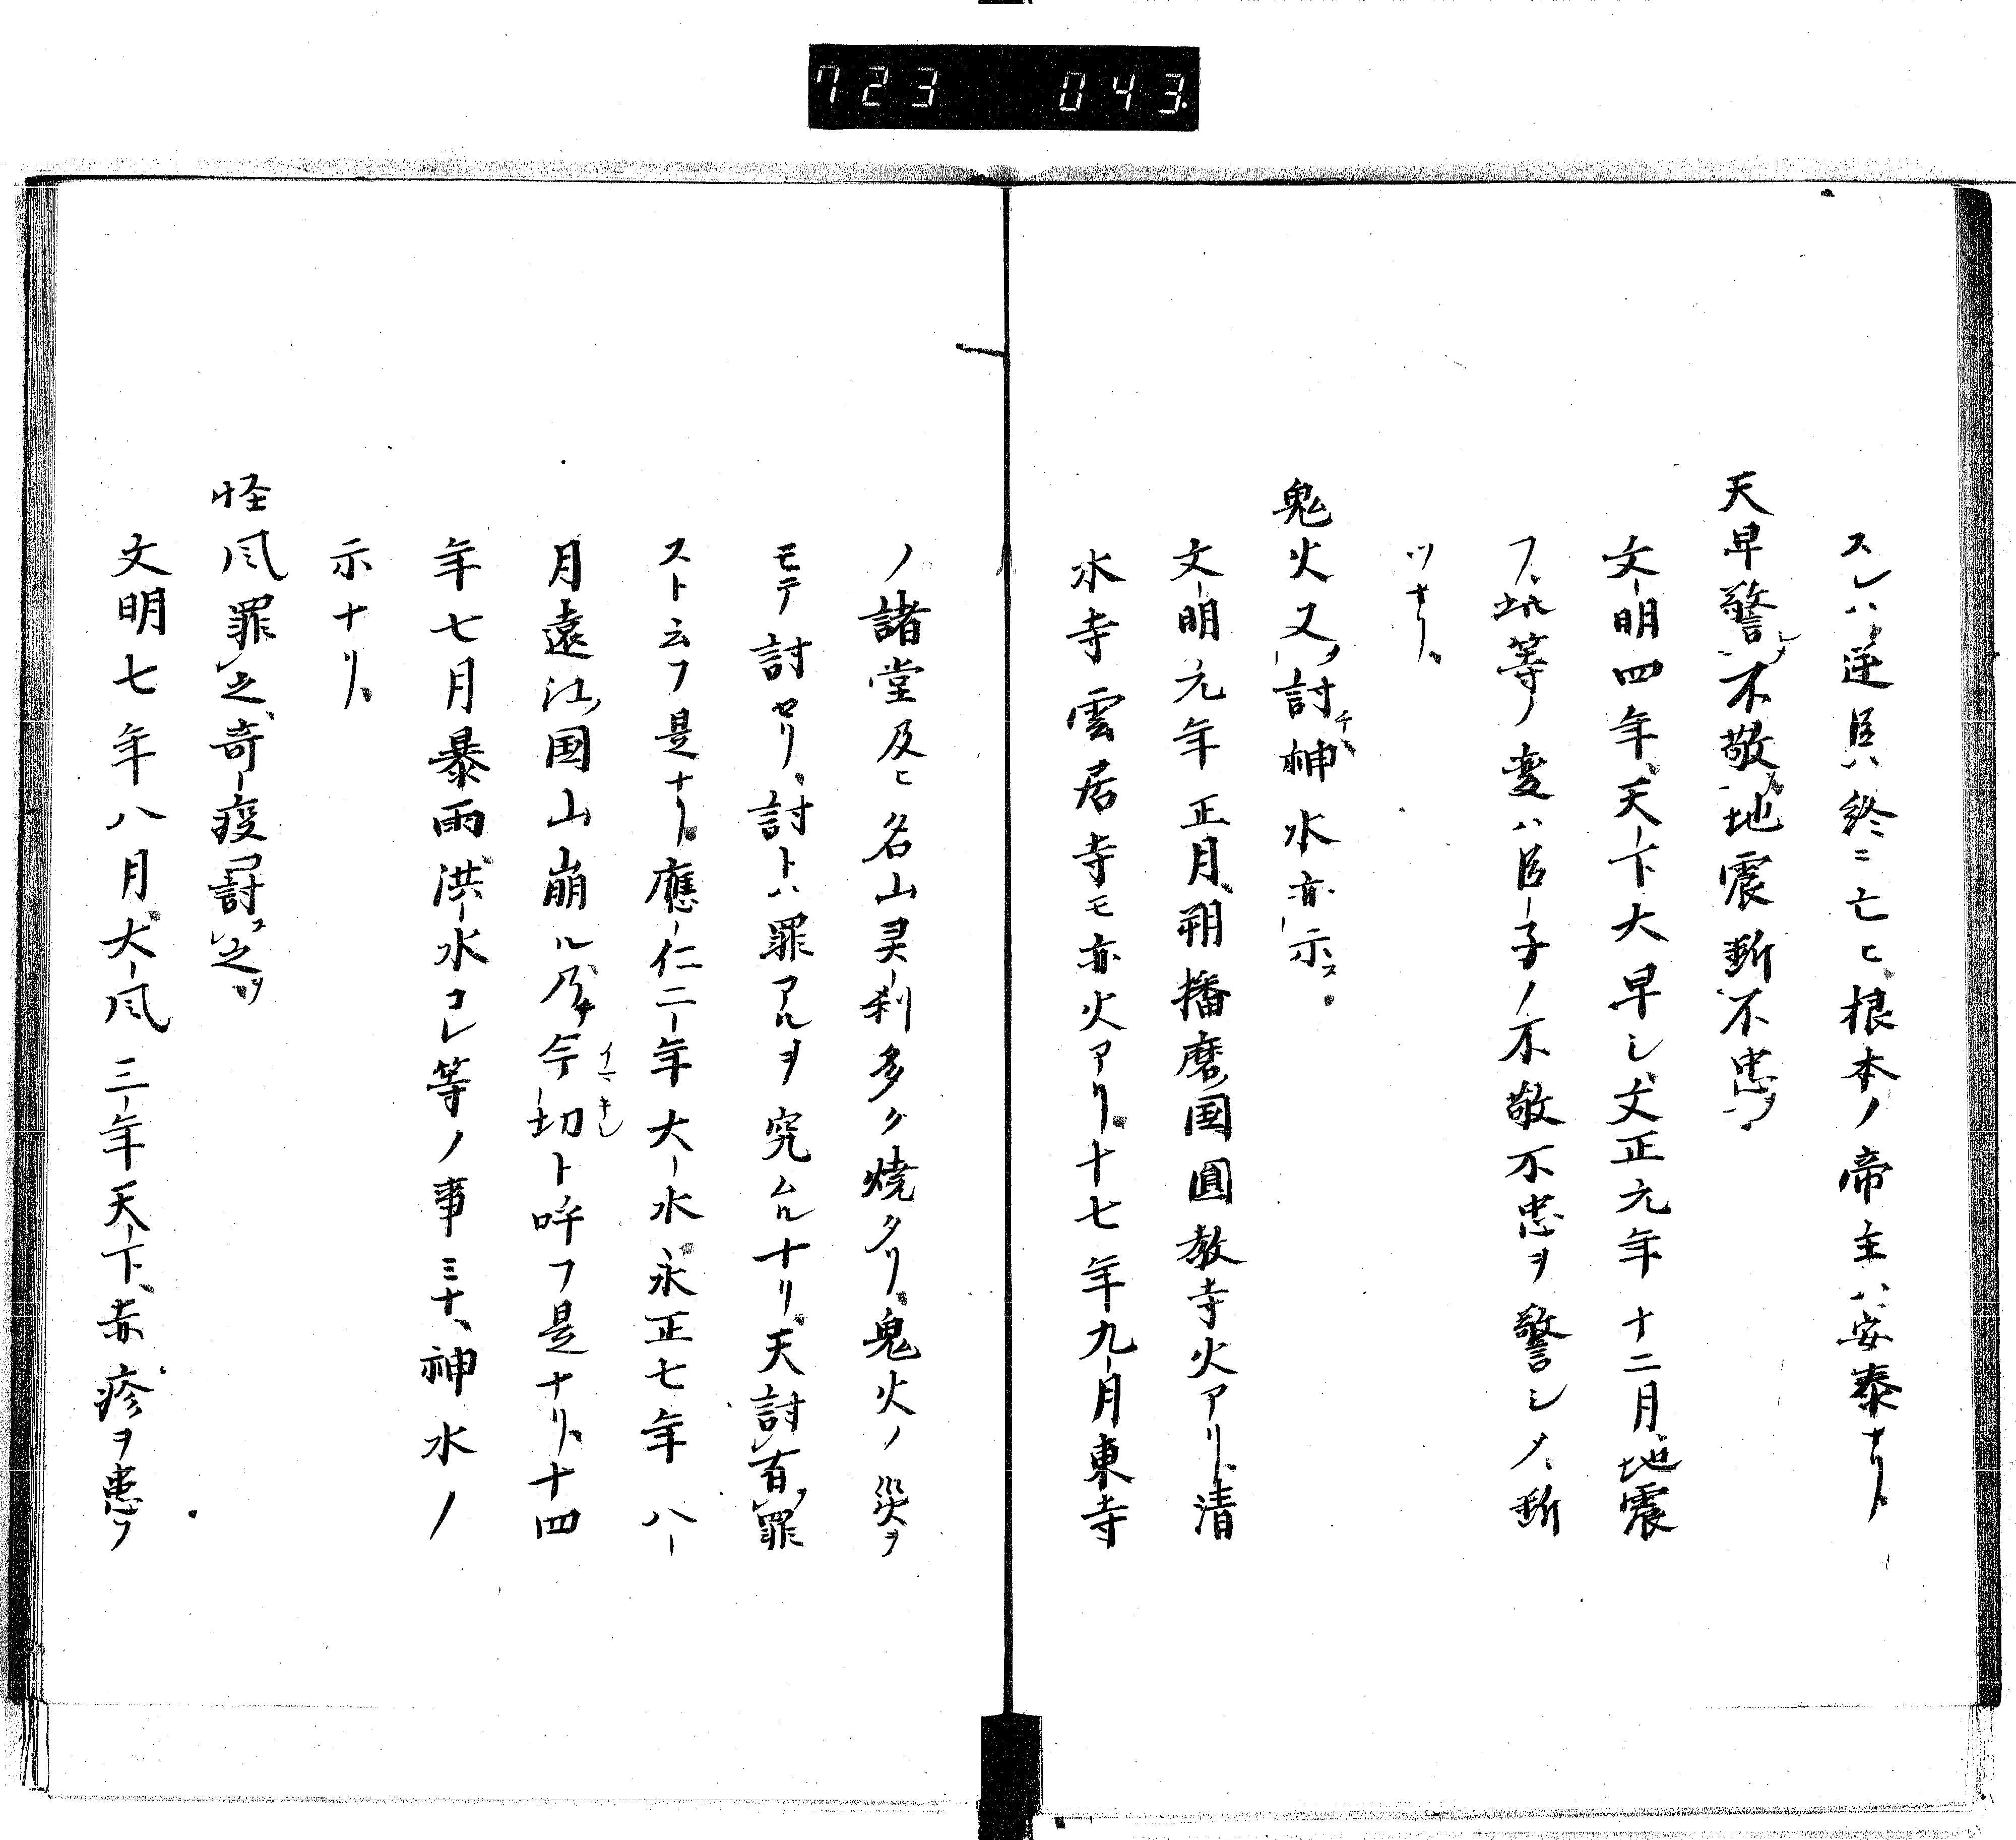 723 043
スレハ逆臣ハ終ニ亡ヒ根本ノ帝主ハ安泰ナリ、
天旱警シメ不敬ヲ地震断不忠ヲ
文明四年、天下大旱シ、文正元年十二月地震
フ、此等ノ変ハ臣子ノ不敬不忠ヲ警シメ、断
ツナリ、
鬼火又討チ神水亦示ス
文明元年正月朔播磨国圓教寺火アリ、清
水寺雲居寺モ亦火アリ、十七年九月東寺
ノ諸堂及ヒ名山灵刹多ク焼タリ、鬼火ノ災ヲ
モテ討セリ、討トハ罪アルヲ究ムルナリ、天討有罪
スト云フ是ナリ、應仁二年大水、永正七年八
月遠江国山崩ル今切イマキレト呼フ是ナリ、十四
年七月暴雨洪水コレ等ノ事ミナ、神水ノ
示ナリ、
怪風罪之、奇疫罸ス之ヲ
文明七年八月大風三年天下、赤疹ヲ患フ